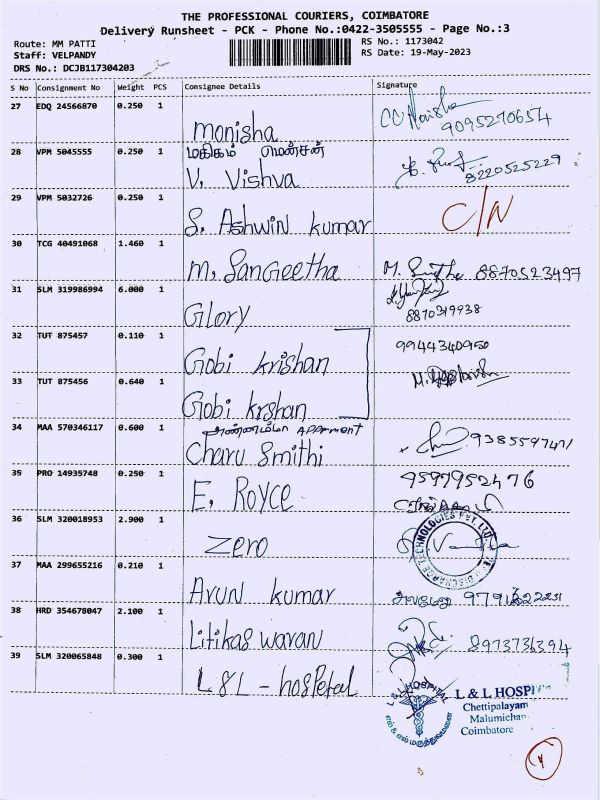 THE PROFESSIONAL COURIERS, COIMBATORE
Delivery Runsheet - PCK - Phone No.:0422-3505555 - Page No.:3
Route: MM PATTI
RS No.: 1173042
Staff: VELPANDY
RS Date: 19-May-2023
DRS No.: DCJB117304203
S No Consignment No Weight PCS Consignee Details Signature
27 EDQ 24566870 0.250 1
monisha 9095270654
28 VPM 5045555 0.250 1 மகிகம் மென்சன்
V. Vishva 8220525229
29 VPM 5032726 0.250 1
S. Ashwin kumar C/N
30 TCG 40491068 1.460 1
M. Sangeetha 8870523497
31 SLM 319986994 6.000 1
Glory 8870319938
32 TUT 875457 0.110 1
Gobi krishan 9944340950
33 TUT 875456 0.640 1
Gobi krshan
34 MAA 570346117 0.600 1 APPArment
Charu Smithi
35 PRO 14935748 0.250 1
E. Royce 9597952476
36 SLM 320018953 2.900 1
Zero
TECHNOLOGIES PVT LTD
37 MAA 299655216 0.210 1
Arun kumar
38 HRD 354678047 2.100 1
Litikas waran 8973736394
39 SLM 320065848 0.300 1
L & L - hospetal
L & L HOSPITAL
L & L HOSPI
Chettipalayam
Malumichan
Coimbatore